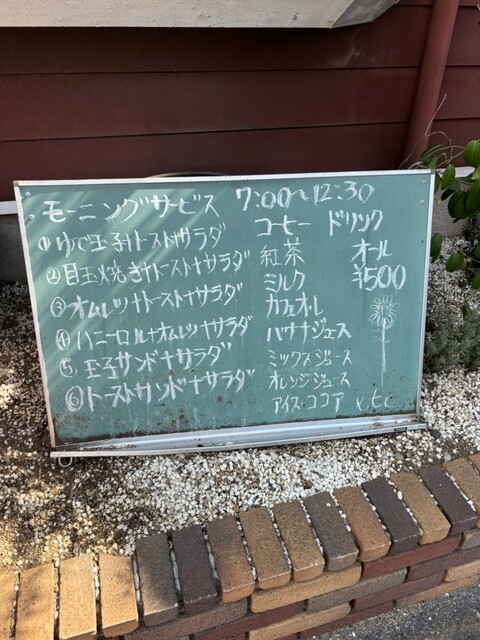 モーニングサービス 7:00〜12:30
①ゆで玉子+トースト+サラダ
②目玉焼き+トースト+サラダ
③オムレツ+トースト+サラダ
④ハニーロール+オムレツ+サラダ
⑤玉子サンド+サラダ
⑥トーストサンド+サラダ
コーヒー ドリンク
紅茶 オール
ミルク ¥500
カフェオレ
バナナジュース
ミックスジュース
オレンジジュース
アイス・ココア etc